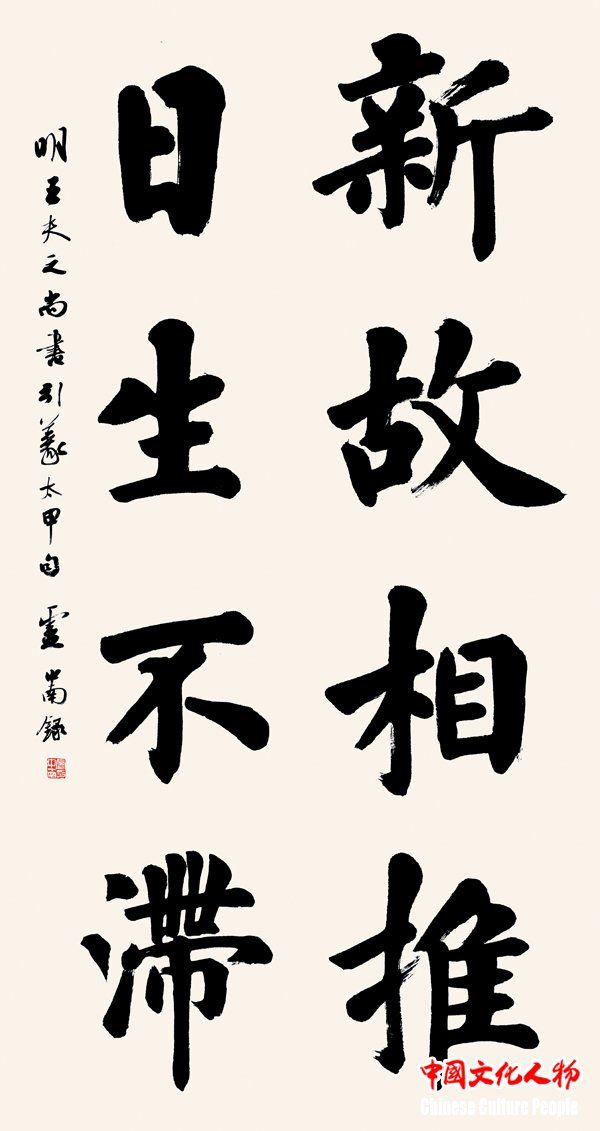 新故相推
日生不滞
明王夫之尚書引義太甲句 盧中南録
中国文化人物
Chinese Culture People